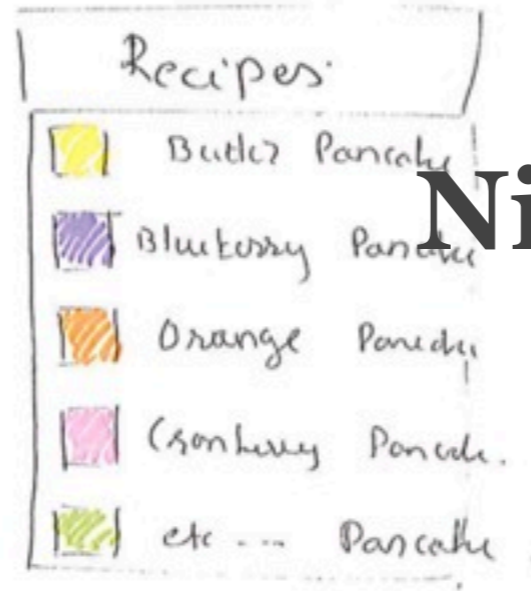 Recipes
Butter Pancake
Ni
Blueberry Pancake
Orange Pancake
Cranberry Pancake.
etc .... Pancake